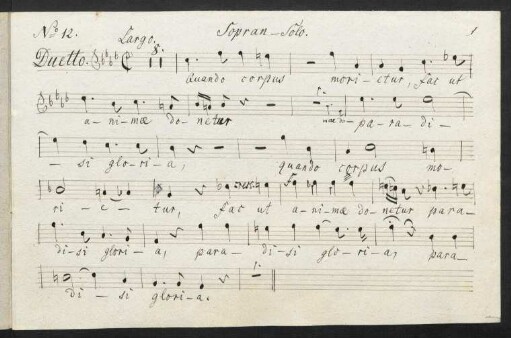 No. 12. Largo. Sopran-Solo. 1
Duetto. 8.
Quando corpus mori-etur, Fac ut
a-ni-mæ do-netur pa-ra-di-
-si glo-ri-a, quando corpus mo-
ri-e-tur, Fac ut a-ni-mæ donetur para-
di-si gloria, para-di-si glo-ri-a, para-
di-si glori-a.